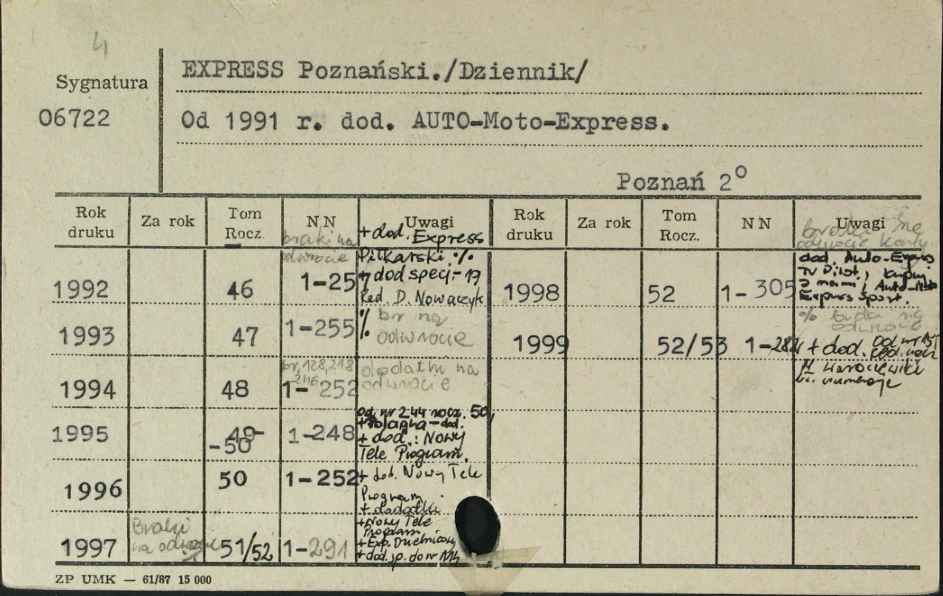 4
EXPRESS Poznański./Dziennik/
Sygnatura
06722
Od 1991 r. dod. AUTO-Moto-Express.
Poznań 2°
Rok druku Za rok Tom Rocz. NN Uwagi Rok druku Za rok Tom Rocz. NN Uwagi
braki na odwrocie
+ dod. Express
Piłkarski %
1992 46 1-25
+ dod specj.- 19
Red. D. Nowaczyk
1998 52 1-305
braki na odwrocie karty
dod. Auto-Expres
TV Pilot,
z nami, Auto-Moto
Express Sport.
1993 47 1-255 % br na odwrocie
1999 52/53 1-284 + dod. od nr 151
% braki na odwrocie
br. numeracje
1994 48 br. 128, 218 246 1-252 dodatki na odwrocie
od nr 244 rocz. 50,
1995 49-50 1-248
+ dod.: Nowy
Tele Program.
1996 50 1-252 + dod. Nowy Tele
Program
+ dodatki
1997 Braki na odwrocie 51/52 1-291
+ Nowy Tele
Program
+ Exp. Dzielnicowy
+ dod. sp. do nr 114
ZP UMK — 61/87 15 000